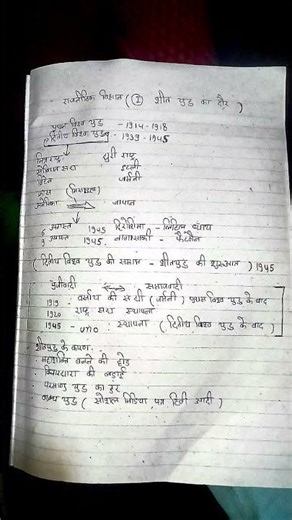 राजनीतिक विज्ञान ( ① शीत युद्ध का दौर )
प्रथम विश्व युद्ध - 1914-1918
द्वितीय विश्व युद्ध - 1939-1945
मित्र राष्ट्र धुरी राष्ट्र
सोवियत संघ इटली
ब्रिटेन जर्मनी
फ्रांस
अमेरिका जापान
6 अगस्त 1945 हिरोशिमा - लिटिल ब्वाय
9 अगस्त 1945. नागासाकी - फैटमैन
( द्वितीय विश्व युद्ध की समाप्त - शीतयुद्ध की शुरुआत ) 1945
पूंजीवादी समाजवादी
1919 - वर्साय की संधी ( जर्मनी ) प्रथम विश्व युद्ध के बाद
1920 राष्ट्र संघ स्थापना
1945 - uno : स्थापना ( द्वितीय विश्व युद्ध के बाद )
शीतयुद्ध के कारण.
· महाशक्ति बनने की होड़
· विचारधारा की लड़ाई
· परमाणु युद्ध का डर
· युद्ध ( सोशल मिडिया, पत्र टिवी आदि )